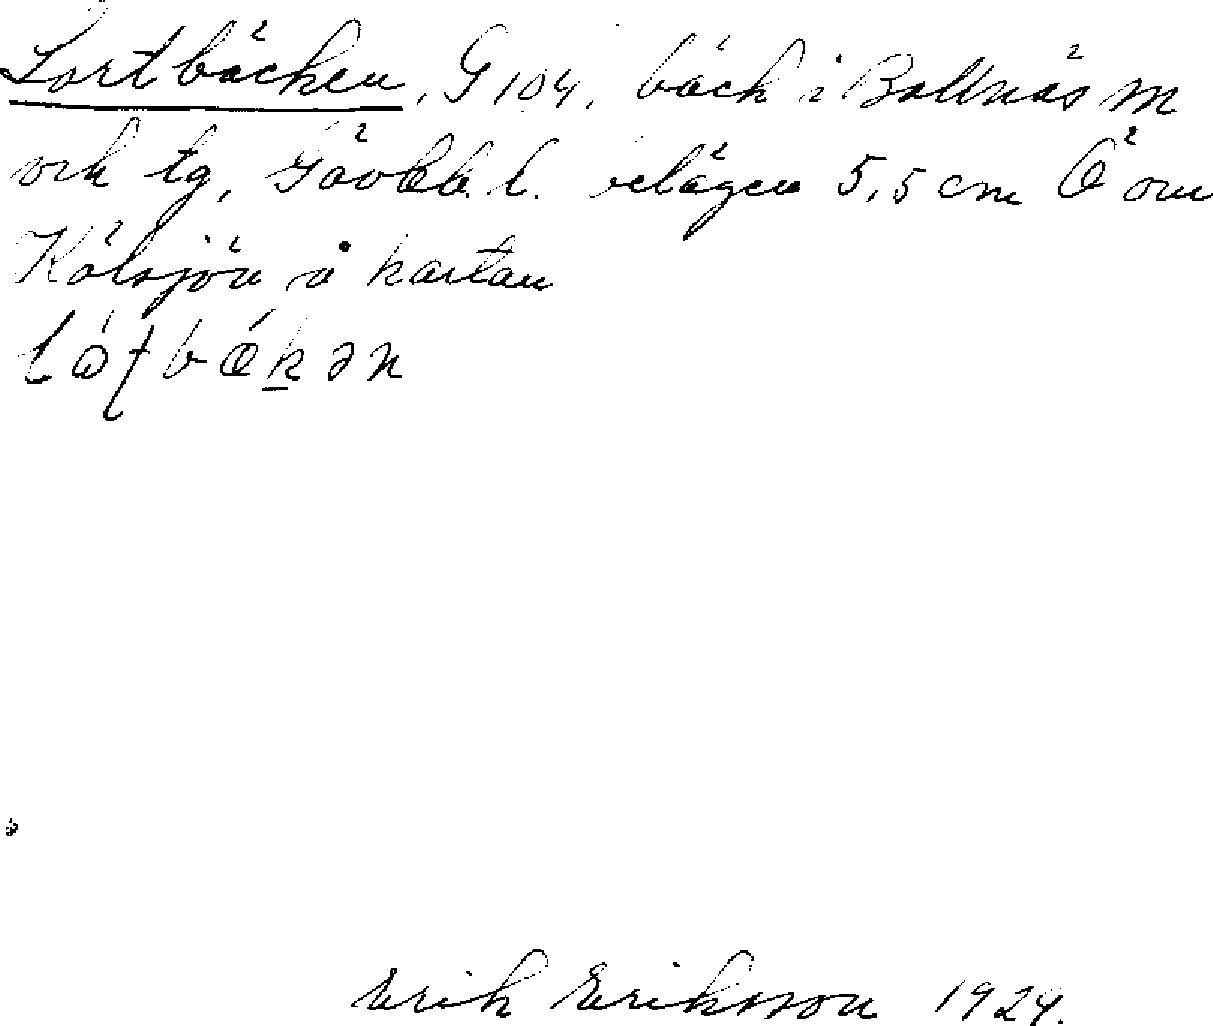 Lortbäcken, G 104, bäck i Bollnäs m
ock tg, Gävleb. l. belägen 5,5 cm Ö om
Kölsjön å kartan
Erik Eriksson 1924.